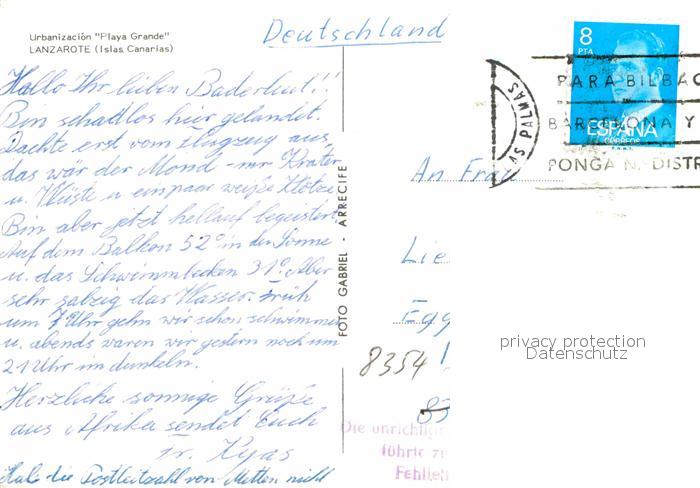 Urbanización "Playa Grande"
LANZAROTE (Islas Canarias)
Deutschland
Hallo Ihr lieben Badersleut!!
Bin schadlos hier gelandet.
Dachte erst vom Flugzeug aus,
das wär der Mond - nur Krater
u. Wüste u ein paar weiße Klötze
Bin aber jetzt hellauf begeistert
Auf dem Balkon 52° in der Sonne
u. das Schwimmbecken 31°. Aber
sehr salzig das Wasser. Früh
um 7 Uhr gehn wir schon schwimmen
u. abends waren wir gestern noch um
21 Uhr im dunkeln.
Herzliche sonnige Grüße
aus Afrika sendet Euch
Fr. Kyas
Hab die Postleitzahl von Metten nicht
FOTO GABRIEL - ARRECIFE
8
PTA
ESPAÑA
CORREOS
AS PALMAS
PARA BILBAO
BARCELONA Y
PONGA N. DISTR
An Frau
Lie
Egg
8354
83
Die unrichtige
führte zu
Fehlleit
privacy protection
Datenschutz